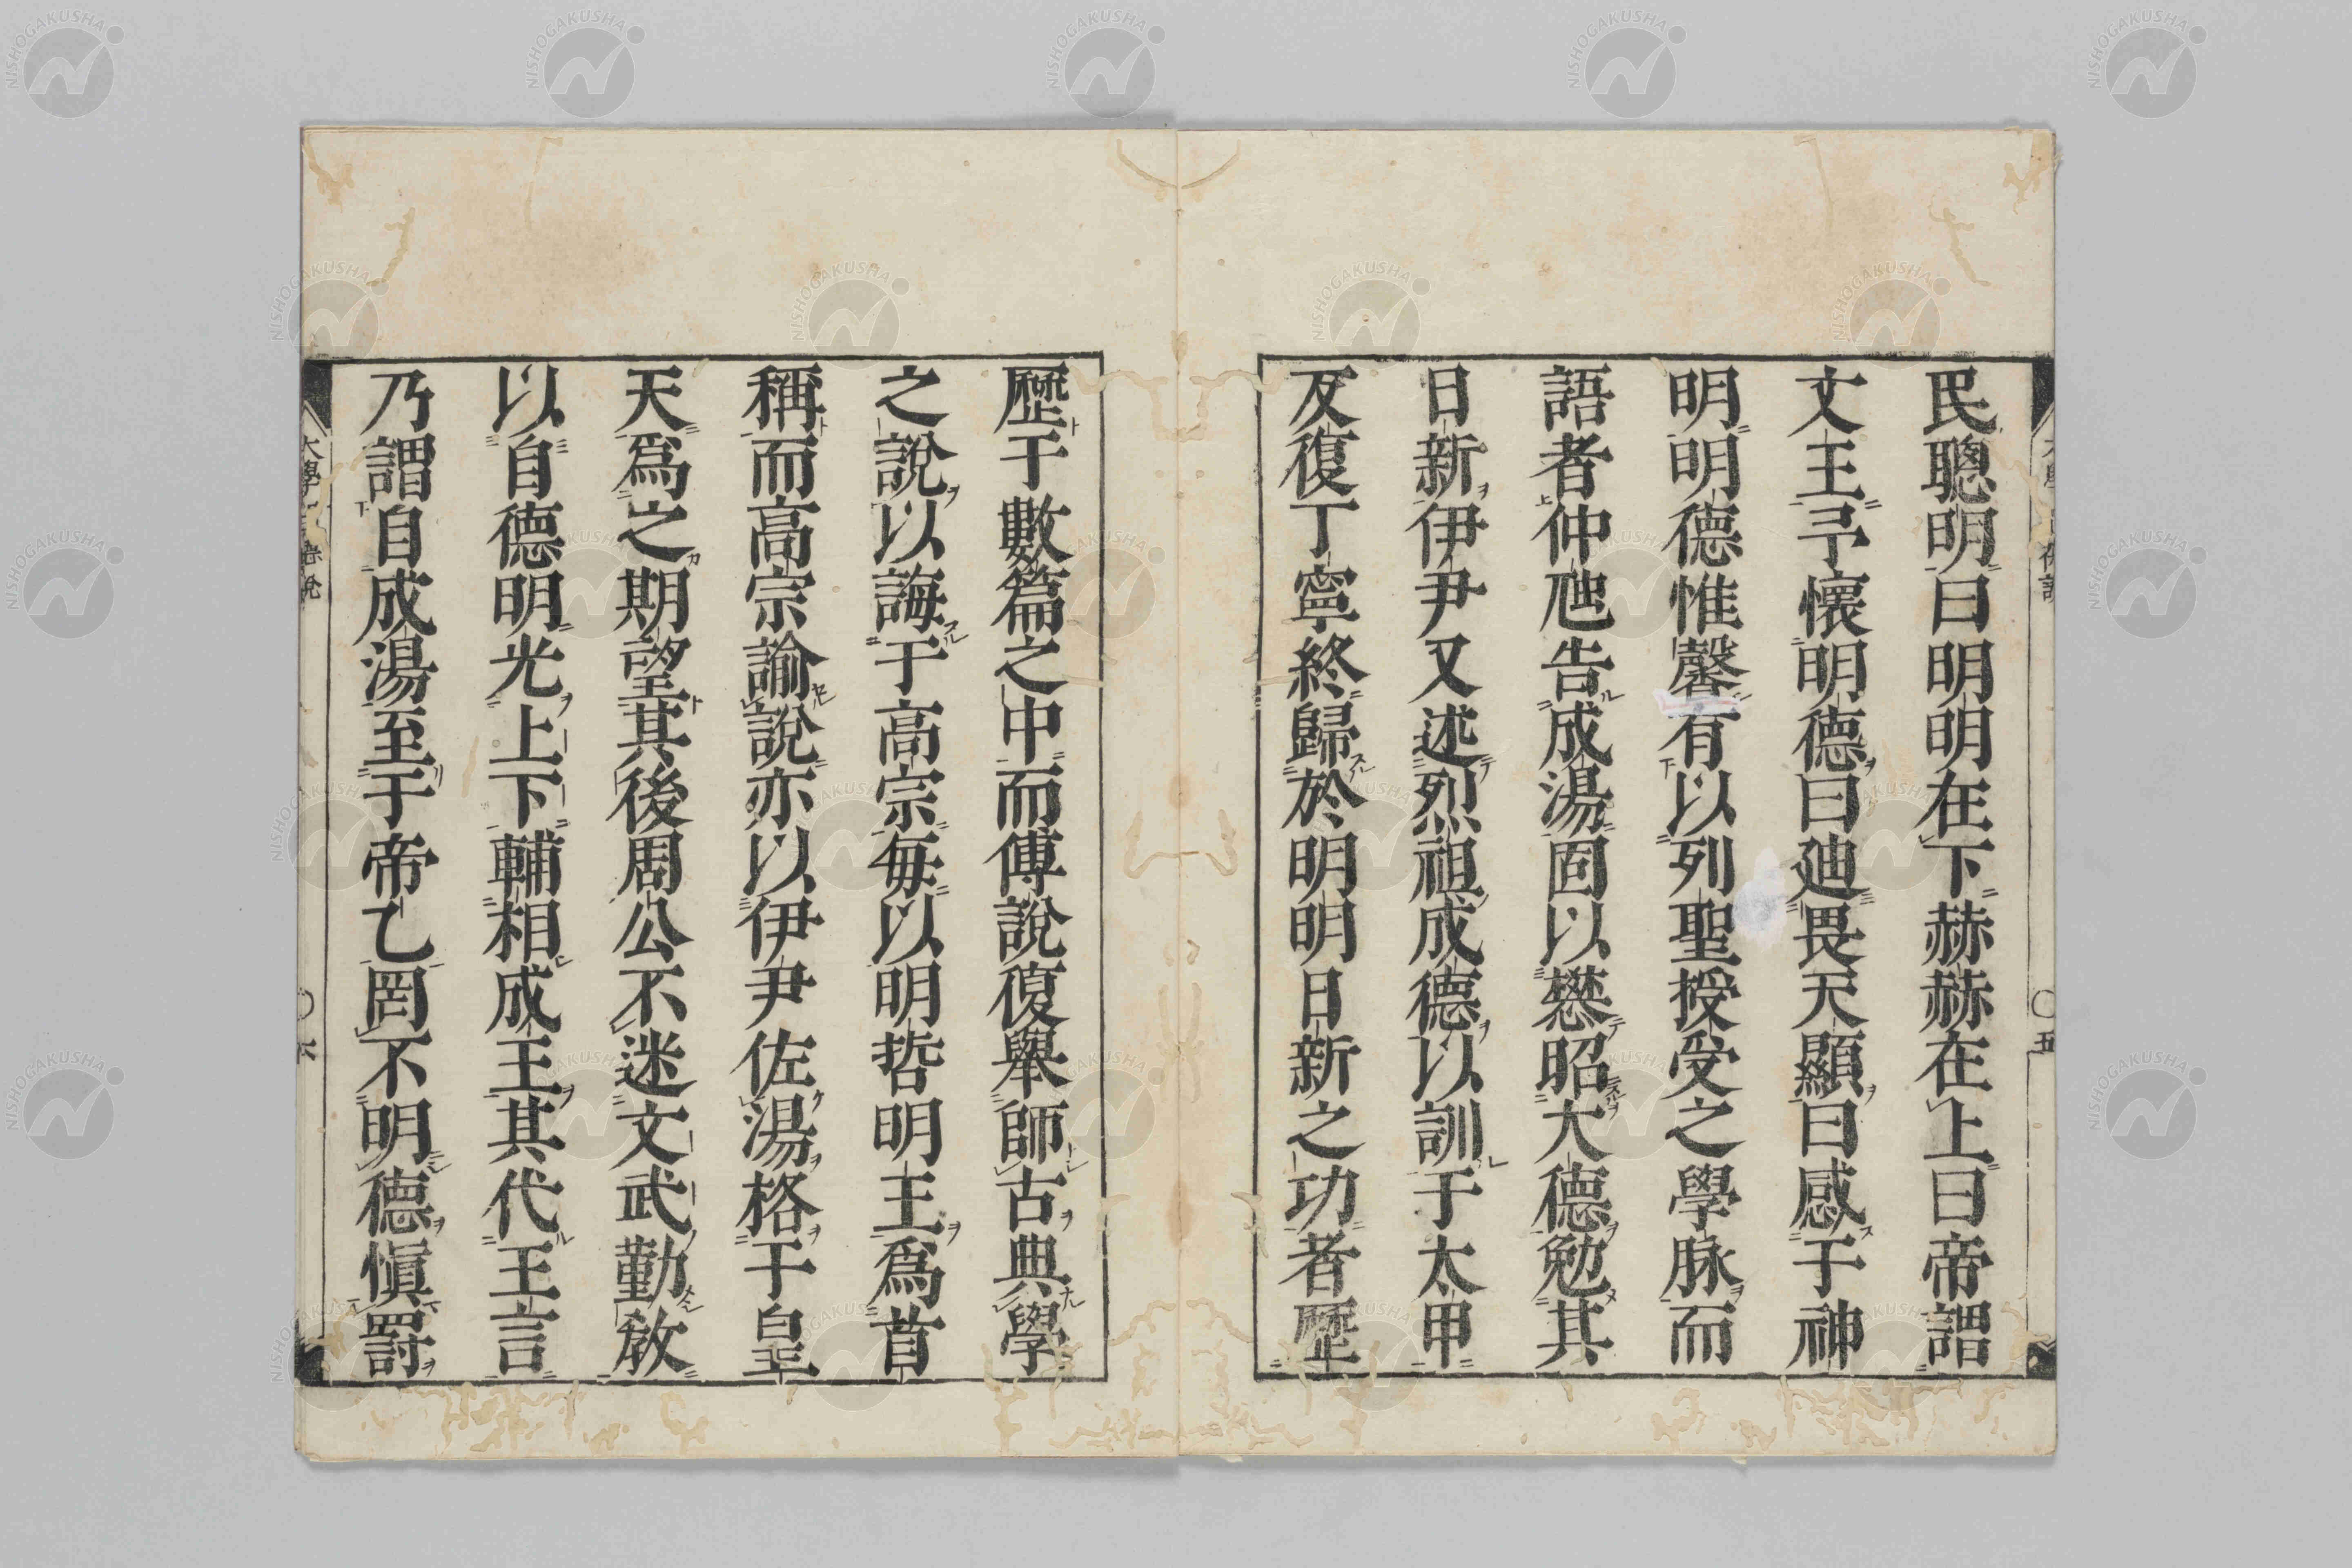 民聰明曰明明在下赫赫在上曰帝謂
文王予懷明德曰廸畏天顯曰感于神
明明德惟馨有以列聖授受之學脉而
語者仲虺告成湯固以懋昭大德勉其
日新伊尹又述烈祖成德以訓于太甲
反復丁寧終歸於明明日新之功者歷
歷于數篇之中而傅說復舉師古典學
之說以誨于高宗每以明哲明王爲首
稱而高宗諭說亦以伊尹佐湯格于皇
天爲之期望其後周公不迷文武勤敎
以自德明光上下輔相成王其代王言
乃謂自成湯至于帝乙罔不明德愼罰